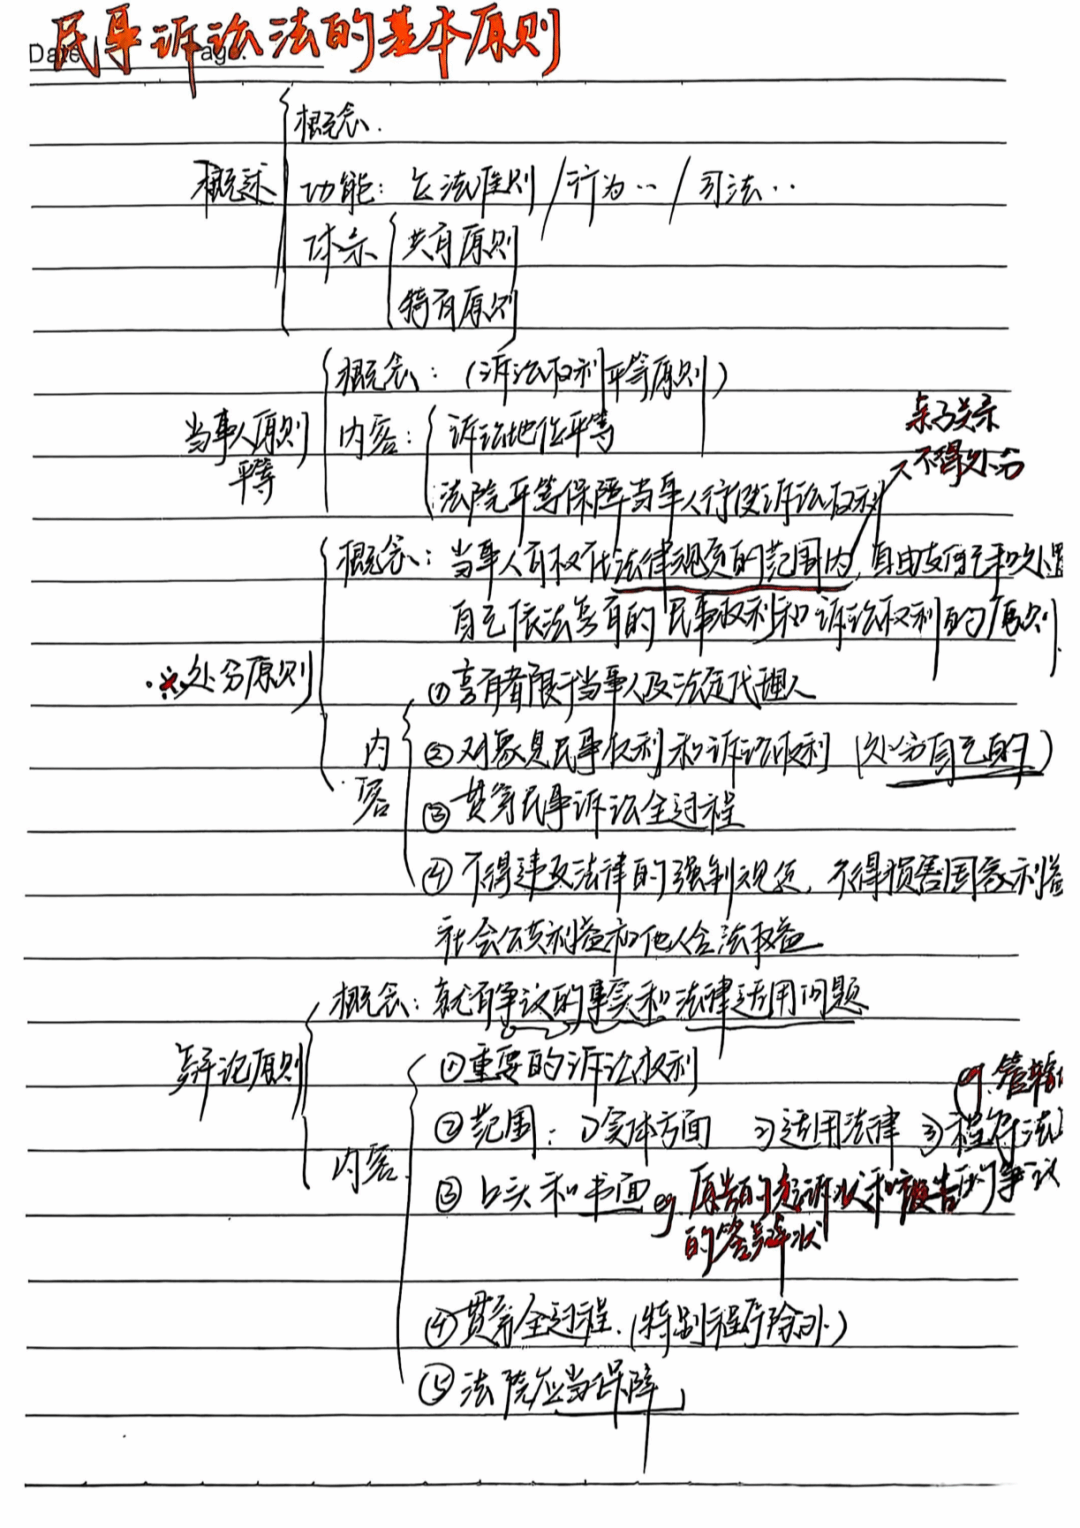 民事诉讼法的基本原则
Date
概念.
概述
功能: 立法准则 / 行为‥ / 司法‥
体系 共有原则
特有原则
概念: (诉讼权利平等原则)
当事人原则
平等
内容: 诉讼地位平等
法院平等保障当事人行使诉讼权利
亲子关系
不得处分
概念: 当事人有权在法律规定的范围内, 自由支配和处置
自己依法享有的民事权利和诉讼权利的原则
※处分原则
内容
①享有者限于当事人及法定代理人
②对象是民事权利和诉讼权利 (处分自己的)
③贯穿民事诉讼全过程
④不得违反法律的强制规定, 不得损害国家利益
社会公共利益和他人合法权益
概念: 就有争议的事实和法律适用问题
辩论原则
内容
①重要的诉讼权利
②范围: 1)实体方面 2)适用法律 3)程序法
eg.管辖
的争议
③口头和书面 eg.原告的起诉状和被告
的答辩状
④贯穿全过程.(特别程序除外)
⑤法院应当保障